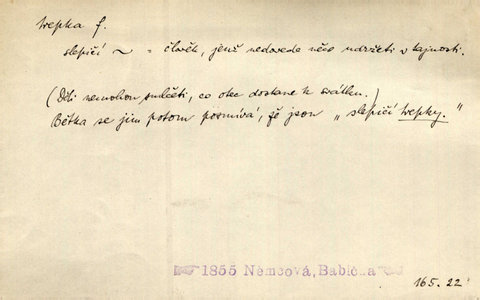 trepka f.
slepičí ~ = člověk, jenž nedovede něco udržeti v tajnosti.
(Děti nemohou smlčeti, co otec dostane k svátku.)
Bětka se jim potom posmívá, že jsou „slepičí trepky."
1855 Němcová, Babička
165. 22